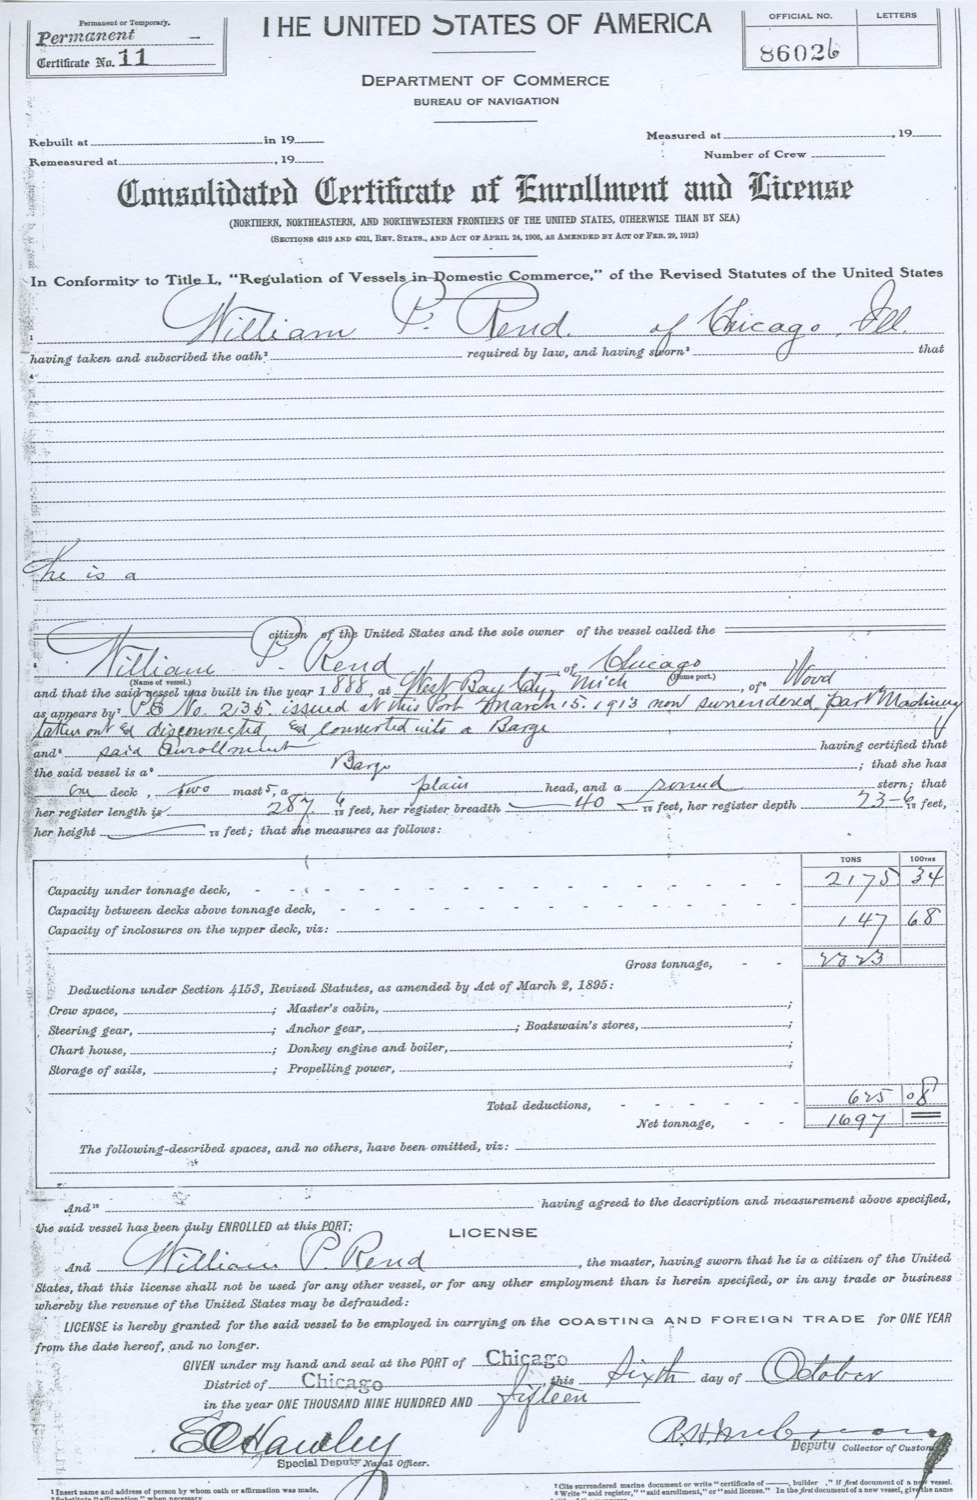 Permanent or Temporary.
Permanent
Certificate No. 11
THE UNITED STATES OF AMERICA
OFFICIAL NO. LETTERS
86026
DEPARTMENT OF COMMERCE
BUREAU OF NAVIGATION
Rebuilt at in 19 Measured at , 19
Remeasured at , 19 Number of Crew
Consolidated Certificate of Enrollment and License
(NORTHERN, NORTHEASTERN, AND NORTHWESTERN FRONTIERS OF THE UNITED STATES, OTHERWISE THAN BY SEA)
(SECTIONS 4319 AND 4321, REV. STATS., AND ACT OF APRIL 24, 1906, AS AMENDED BY ACT OF FEB. 29, 1912)
In Conformity to Title L, "Regulation of Vessels in Domestic Commerce," of the Revised Statutes of the United States
1 William P. Rend. of Chicago, Ill.
having taken and subscribed the oath² required by law, and having sworn³ that
4
he is a
citizen of the United States and the sole owner of the vessel called the
William P. Rend of Chicago
(Name of vessel.) (Home port.)
and that the said vessel was built in the year 1888, at West Bay City, Mich , of⁶ Wood
as appears by⁷ P.E No. 235. issued at this Port March 15. 1913 now surrendered, part Machinery
taken out & disconnected, & converted into a Barge
and⁸ said Enrollment having certified that
the said vessel is a⁹ Barge ; that she has
one deck, two masts, a plain head, and a round stern; that
her register length is 287 6/10 feet, her register breadth 40 /10 feet, her register depth 23-6/10 feet,
her height /10 feet; that she measures as follows:
TONS 100THS
Capacity under tonnage deck, - - - - - - - - - - - - 2175 34
Capacity between decks above tonnage deck, - - - - - - - - - -
Capacity of inclosures on the upper deck, viz: 147 68
Gross tonnage, - - 2323
Deductions under Section 4153, Revised Statutes, as amended by Act of March 2, 1895:
Crew space, ; Master's cabin, ;
Steering gear, ; Anchor gear, ; Boatswain's stores, ;
Chart house, ; Donkey engine and boiler, ;
Storage of sails, ; Propelling power, ;
Total deductions, - - - - - 625 08
Net tonnage, - - 1697
The following-described spaces, and no others, have been omitted, viz:
And¹⁰ having agreed to the description and measurement above specified,
the said vessel has been duly ENROLLED at this PORT;
LICENSE
And William P. Rend , the master, having sworn that he is a citizen of the United
States, that this license shall not be used for any other vessel, or for any other employment than is herein specified, or in any trade or business
whereby the revenue of the United States may be defrauded:
LICENSE is hereby granted for the said vessel to be employed in carrying on the COASTING AND FOREIGN TRADE for ONE YEAR
from the date hereof, and no longer.
GIVEN under my hand and seal at the PORT of Chicago
District of Chicago , this Sixth day of October
in the year ONE THOUSAND NINE HUNDRED AND fifteen
E O Hawley
Special Deputy Naval Officer. Deputy Collector of Customs.
¹ Insert name and address of person by whom oath or affirmation was made.
² Substitute "affirmation" when necessary.
⁷ Cite surrendered marine document or write "certificate of ——, builder ." if first document of a new vessel.
⁸ Write "said register," "said enrollment," or "said license." In the first document of a new vessel, give the name